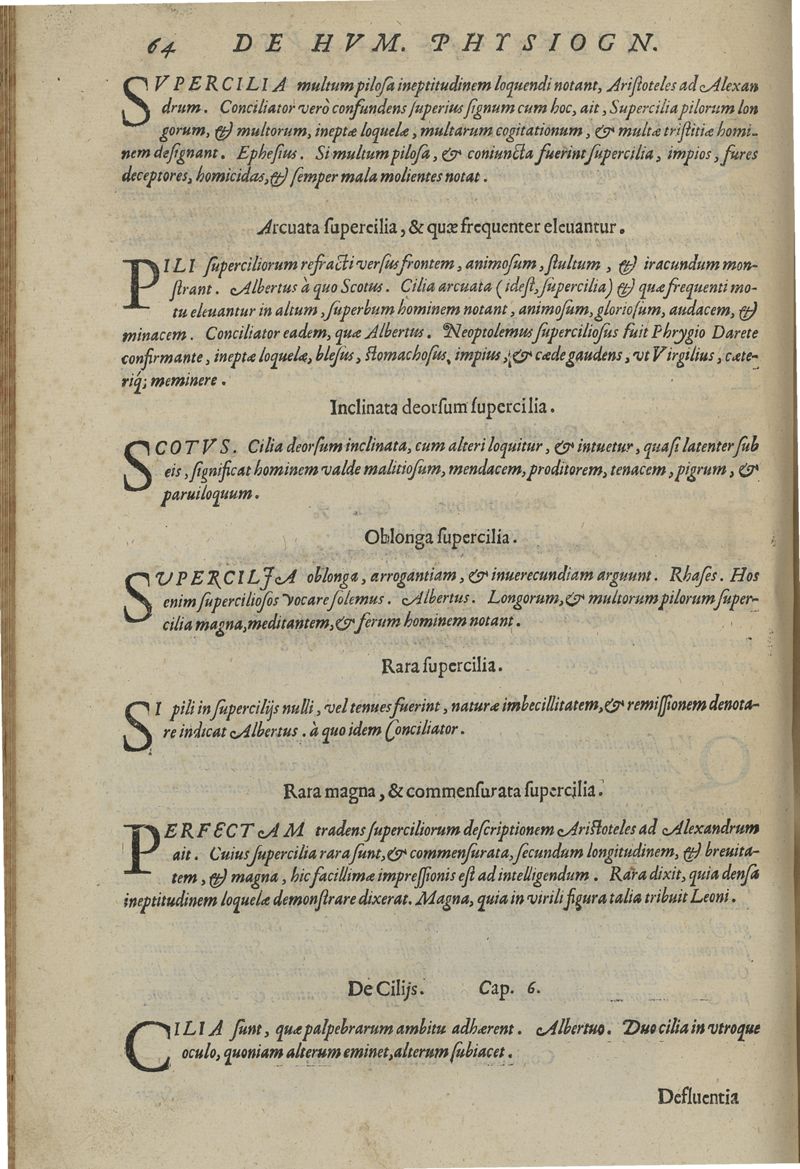 64 DE HVM. PHYSIOGN.
SVPERCILIA multum pilosa ineptitudinem loquendi notant, Aristoteles ad Alexan
drum. Conciliator verò confundens superius signum cum hoc, ait, Supercilia pilorum lon
gorum, & multorum, ineptæ loquelæ, multarum cogitationum, & multæ tristitiæ homi-
nem designant. Ephesius. Si multum pilosa, & coniuncta fuerint supercilia, impios, fures
deceptores, homicidas, & semper mala molientes notat.
Arcuata supercilia, & quæ frequenter eleuantur.
PILI superciliorum refracti versus frontem, animosum, stultum, & iracundum mon-
strant. Albertus à quo Scotus. Cilia arcuata (idest, supercilia) & quæ frequenti mo-
tu eleuantur in altum, superbum hominem notant, animosum, gloriosum, audacem, &
minacem. Conciliator eadem, quæ Albertus. Neoptolemus superciliosus fuit Phrygio Darete
confirmante, ineptæ loquelæ, blesus, stomachosus, impius, & cæde gaudens, vt Virgilius, cæte-
riq; meminere.
Inclinata deorsum supercilia.
SCOTVS. Cilia deorsum inclinata, cum alteri loquitur, & intuetur, quasi latenter sub
eis, significat hominem valde malitiosum, mendacem, proditorem, tenacem, pigrum, &
pauiloquum.
Oblonga supercilia.
SVPERCILIA oblonga, arrogantiam, & inuerecundiam arguunt. Rhases. Hos
enim superciliosos vocare solemus. Albertus. Longorum, & multorum pilorum super-
cilia magna, meditantem, & ferum hominem notant.
Rara supercilia.
SI pili in supercilijs nulli, vel tenues fuerint, naturæ imbecillitatem, & remissionem denota-
re indicat Albertus. à quo idem Conciliator.
Rara magna, & commensurata supercilia.
PERFECTAM tradens superciliorum descriptionem Aristoteles ad Alexandrum
ait. Cuius supercilia rara sunt, & commensurata, secundum longitudinem, & breuita-
tem, & magna, hic facillimæ impressionis est ad intelligendum. Rara dixit, quia densa
ineptitudinem loquelæ demonstrare dixerat. Magna, quia in virili figura talia tribuit Leoni.
De Cilijs. Cap. 6.
CILIA sunt, quæ palpebrarum ambitu adhærent. Albertus. Duo cilia in vtroque
oculo, quoniam alterum eminet, alterum subiacet.
Defluentia